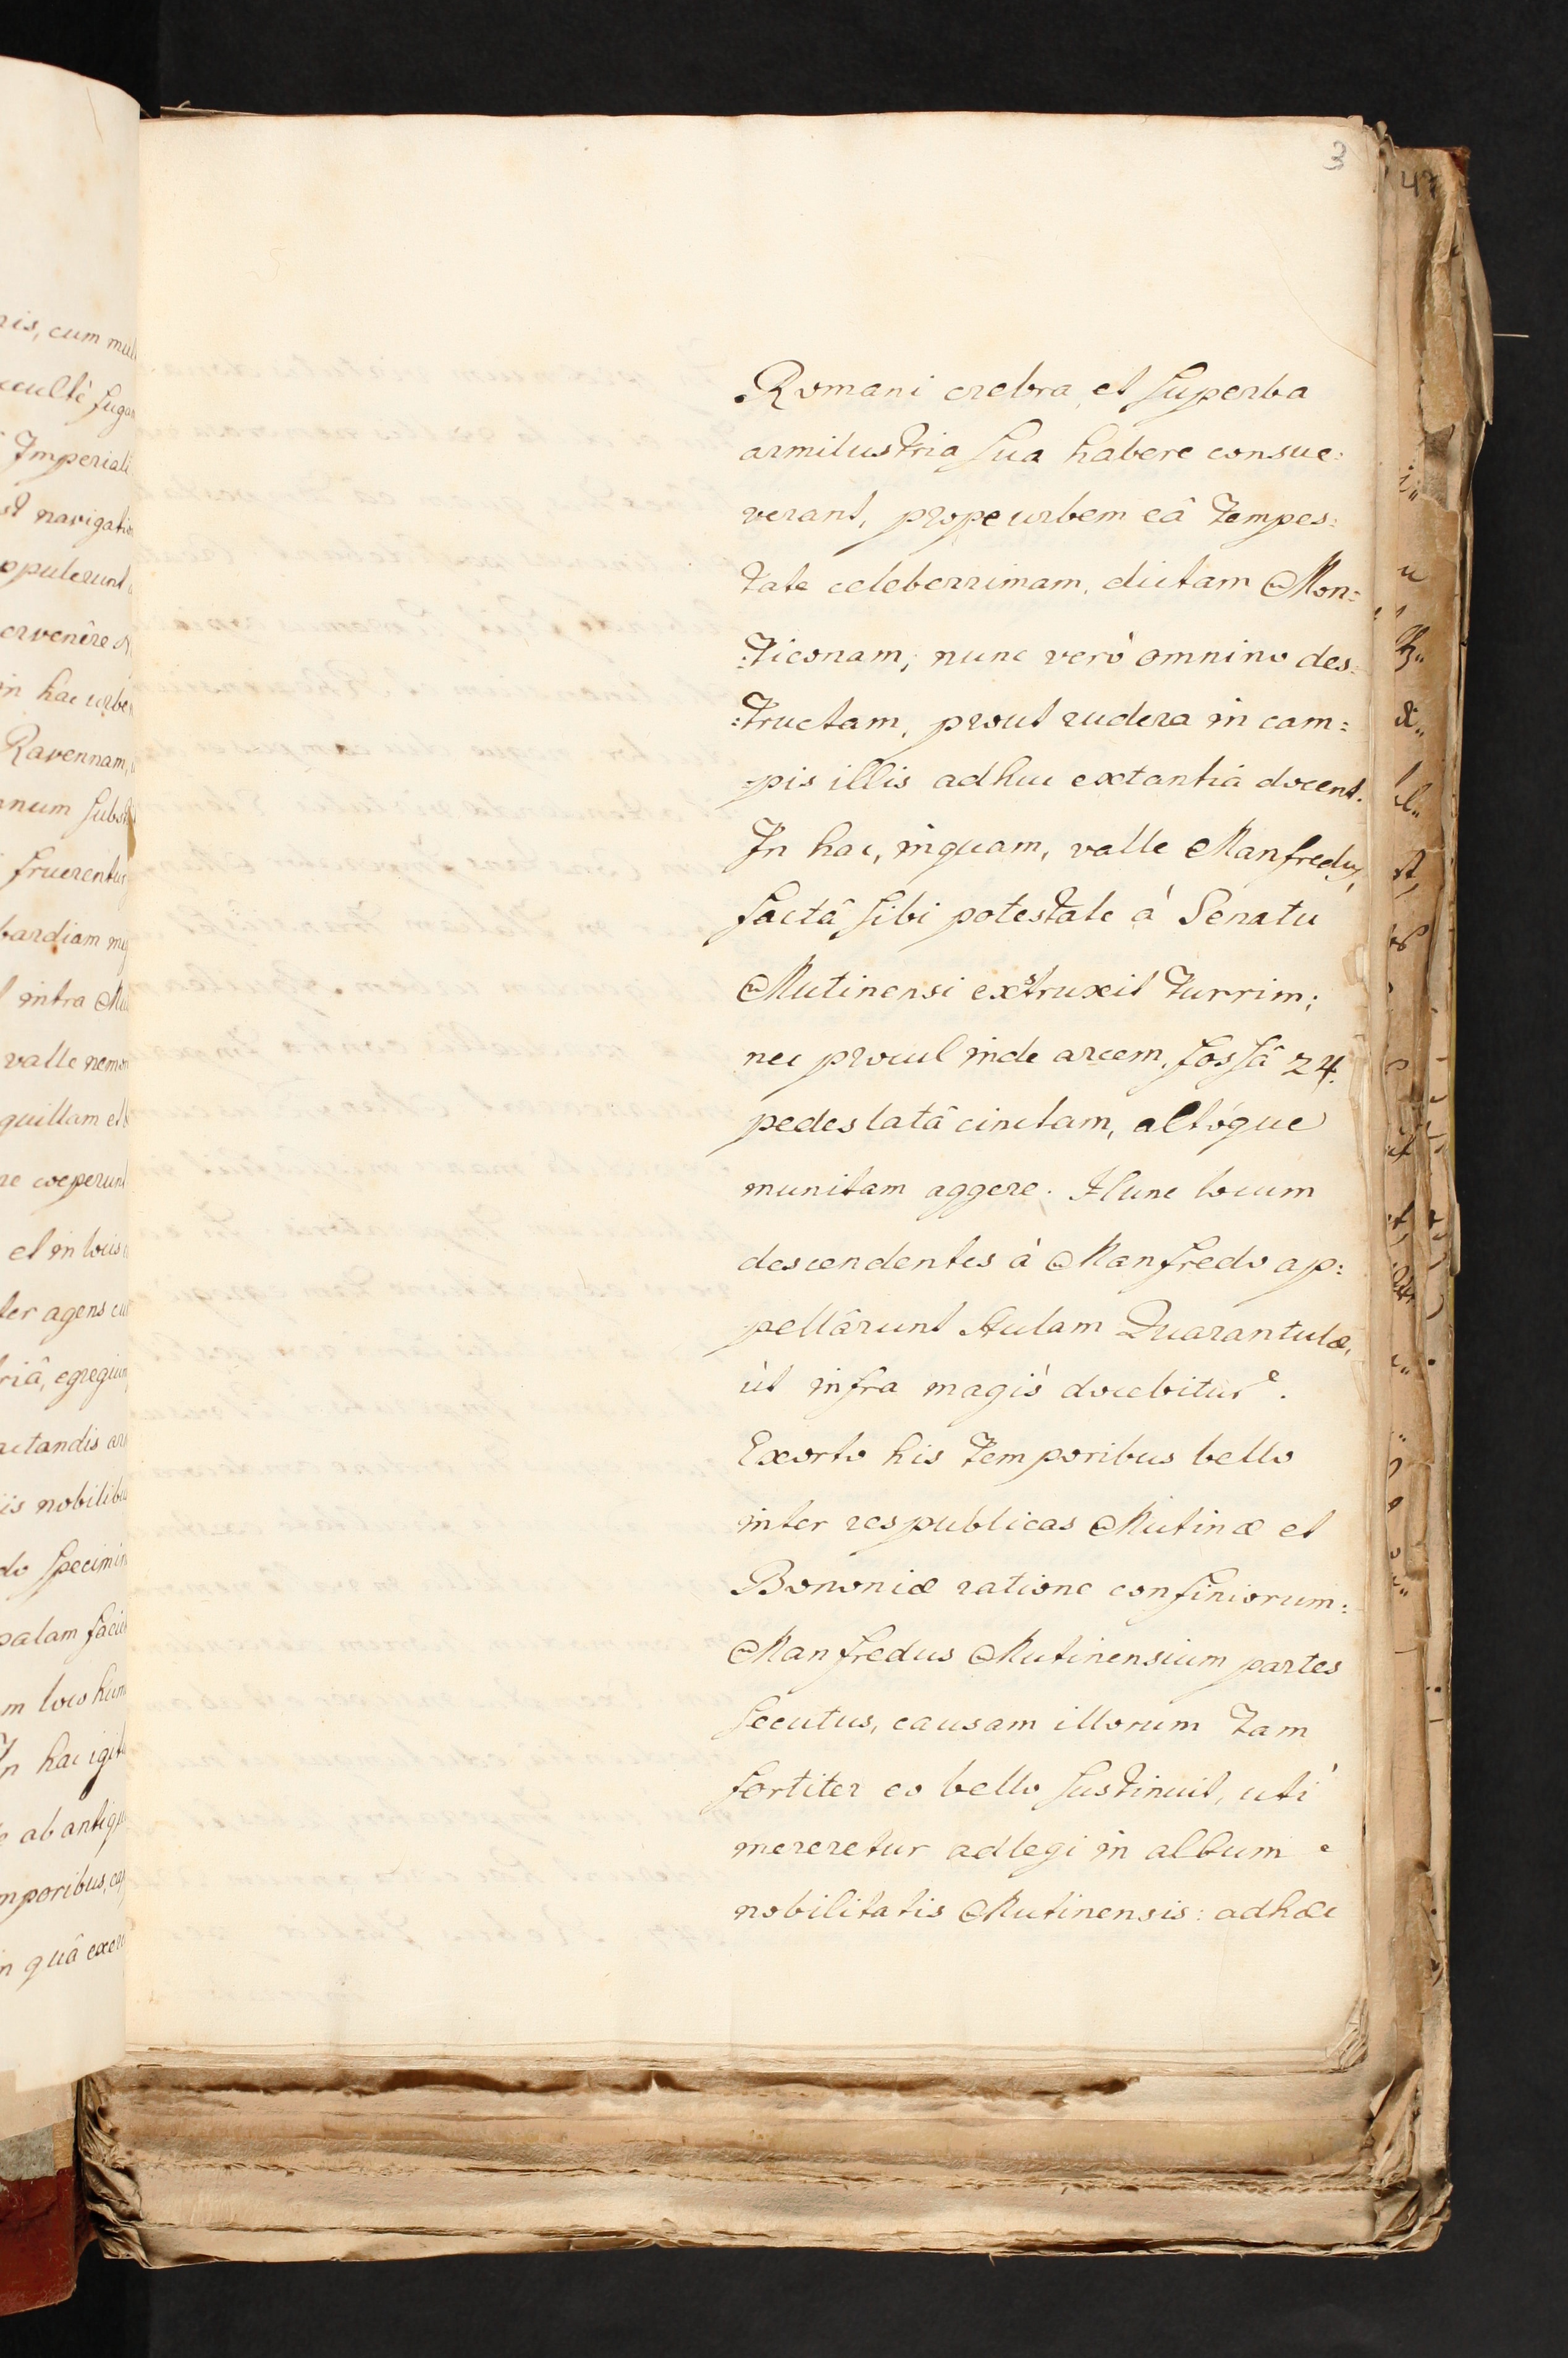 3
47
Romani crebra et superba
armilustria sua habere consue:
verant, prope urbem eâ tempes:
tate celeberrimam, dictam Mon:
:ticonam; nunc verò omnino des:
:tructam, prout rudera in cam:
pis illis adhuc extantia docent.
In hac, inquam, valle Manfredus,
factâ sibi potestate à Senatu
Mutinensi exstruxit turrim;
nec procul inde arcem, fossâ 24.
pedes latâ cinctam, altóque
munitam aggere. Hunc locum
descendentes à Manfredo ap:
pellârunt Aulam Quarantulæ,
ùt infra magis docebitur.
Exorto his temporibus bello
inter respublicas Mutinæ et
Bononiæ ratione confiniorum:
Manfredus Mutinensium partes
secutus, causam illorum tam
fortiter eo bello sustinuit, uti
mereretur adlegi in album
nobilitatis Mutinensis: ad hæc
cum
Imperiali
navigatio
in hac urbe
Ravennam,
intra
valle
et in locis
agens
nobilibus
palam
In hac
ab antiquo
in quâ